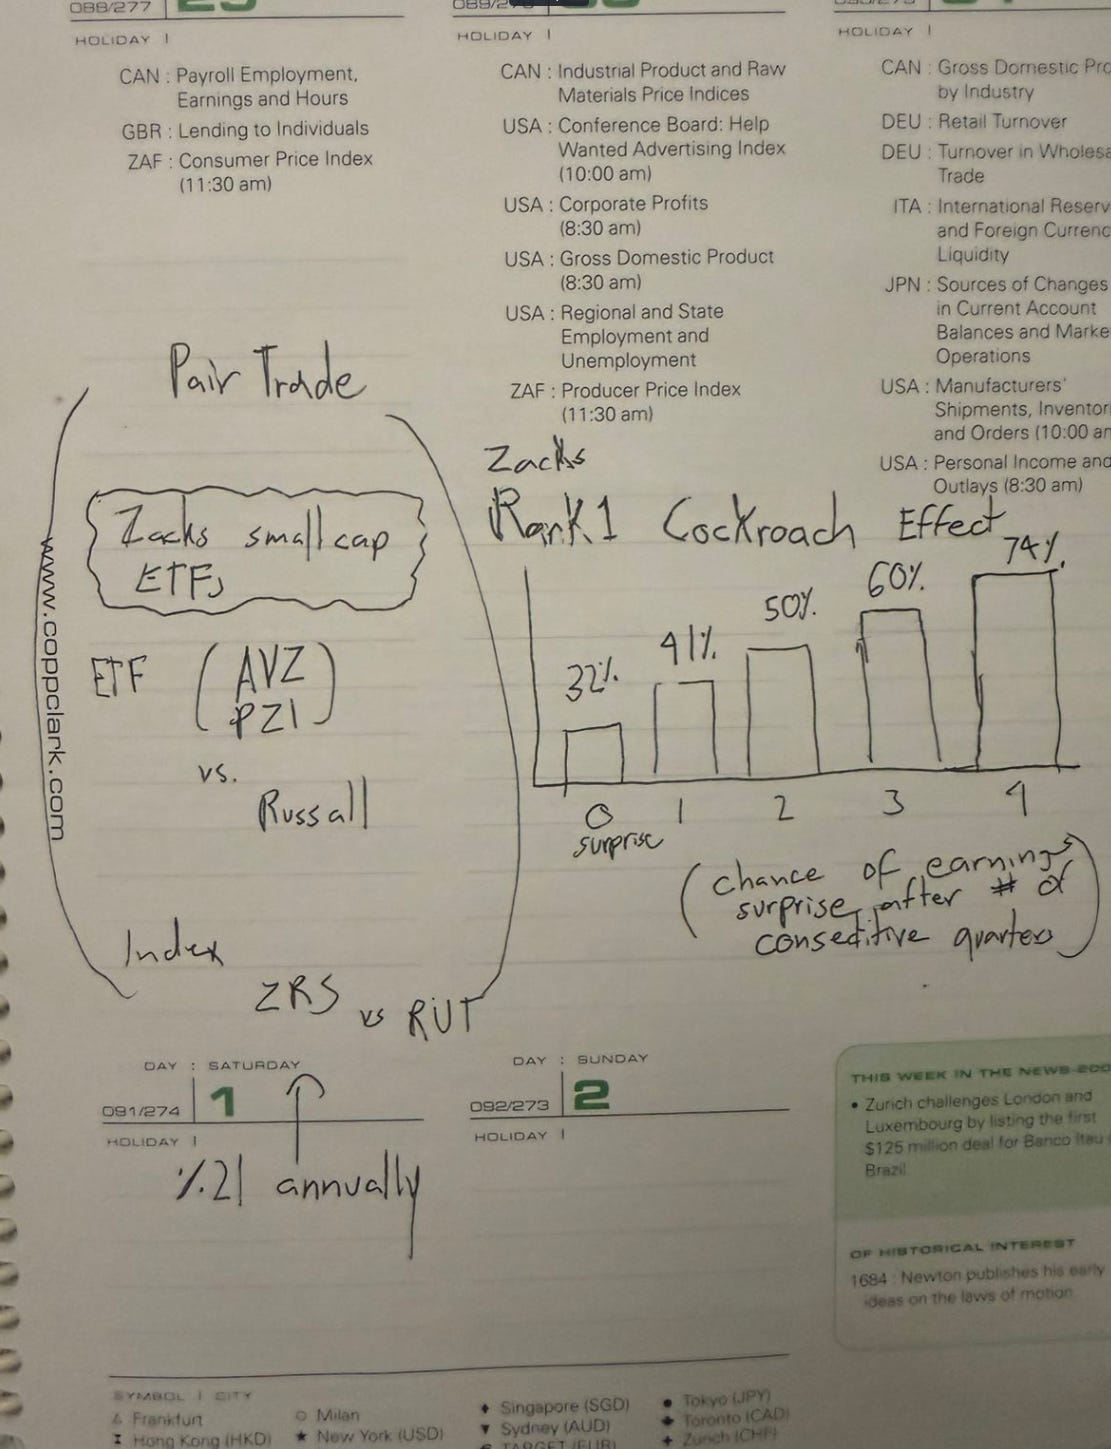 088/277
HOLIDAY |
CAN : Payroll Employment,
Earnings and Hours
GBR : Lending to Individuals
ZAF : Consumer Price Index
(11:30 am)
HOLIDAY |
CAN : Industrial Product and Raw
Materials Price Indices
USA : Conference Board: Help
Wanted Advertising Index
(10:00 am)
USA : Corporate Profits
(8:30 am)
USA : Gross Domestic Product
(8:30 am)
USA : Regional and State
Employment and
Unemployment
ZAF : Producer Price Index
(11:30 am)
HOLIDAY |
CAN : Gross Domestic Pro
by Industry
DEU : Retail Turnover
DEU : Turnover in Wholesa
Trade
ITA : International Reserv
and Foreign Currenc
Liquidity
JPN : Sources of Changes
in Current Account
Balances and Marke
Operations
USA : Manufacturers'
Shipments, Inventor
and Orders (10:00 am
USA : Personal Income and
Outlays (8:30 am)
Pair Trade
Zacks small cap
ETFs
ETF (AVZ
PZI)
vs.
Russall
Index
ZRS vs RUT
www.coppclark.com
Zacks
Rank 1 Cockroach Effect
32% 41% 50% 60% 74%
0 1 2 3 4
surprise
(chance of earnings
surprise after # of
conseditive quarters)
DAY : SATURDAY
091/274 1
HOLIDAY |
%21 annually
DAY : SUNDAY
092/273 2
HOLIDAY |
THIS WEEK IN THE NEWS-200
• Zurich challenges London and
Luxembourg by listing the first
$125 million deal for Banco Itau
Brazil
OF HISTORICAL INTEREST
1684 : Newton publishes his early
ideas on the laws of motion
SYMBOL | CITY
Frankfurt
Hong Kong (HKD)
Milan
★ New York (USD)
♦ Singapore (SGD)
▼ Sydney (AUD)
TARGET (EUR)
● Tokyo (JPY)
Toronto (CAD)
Zurich (CHF)